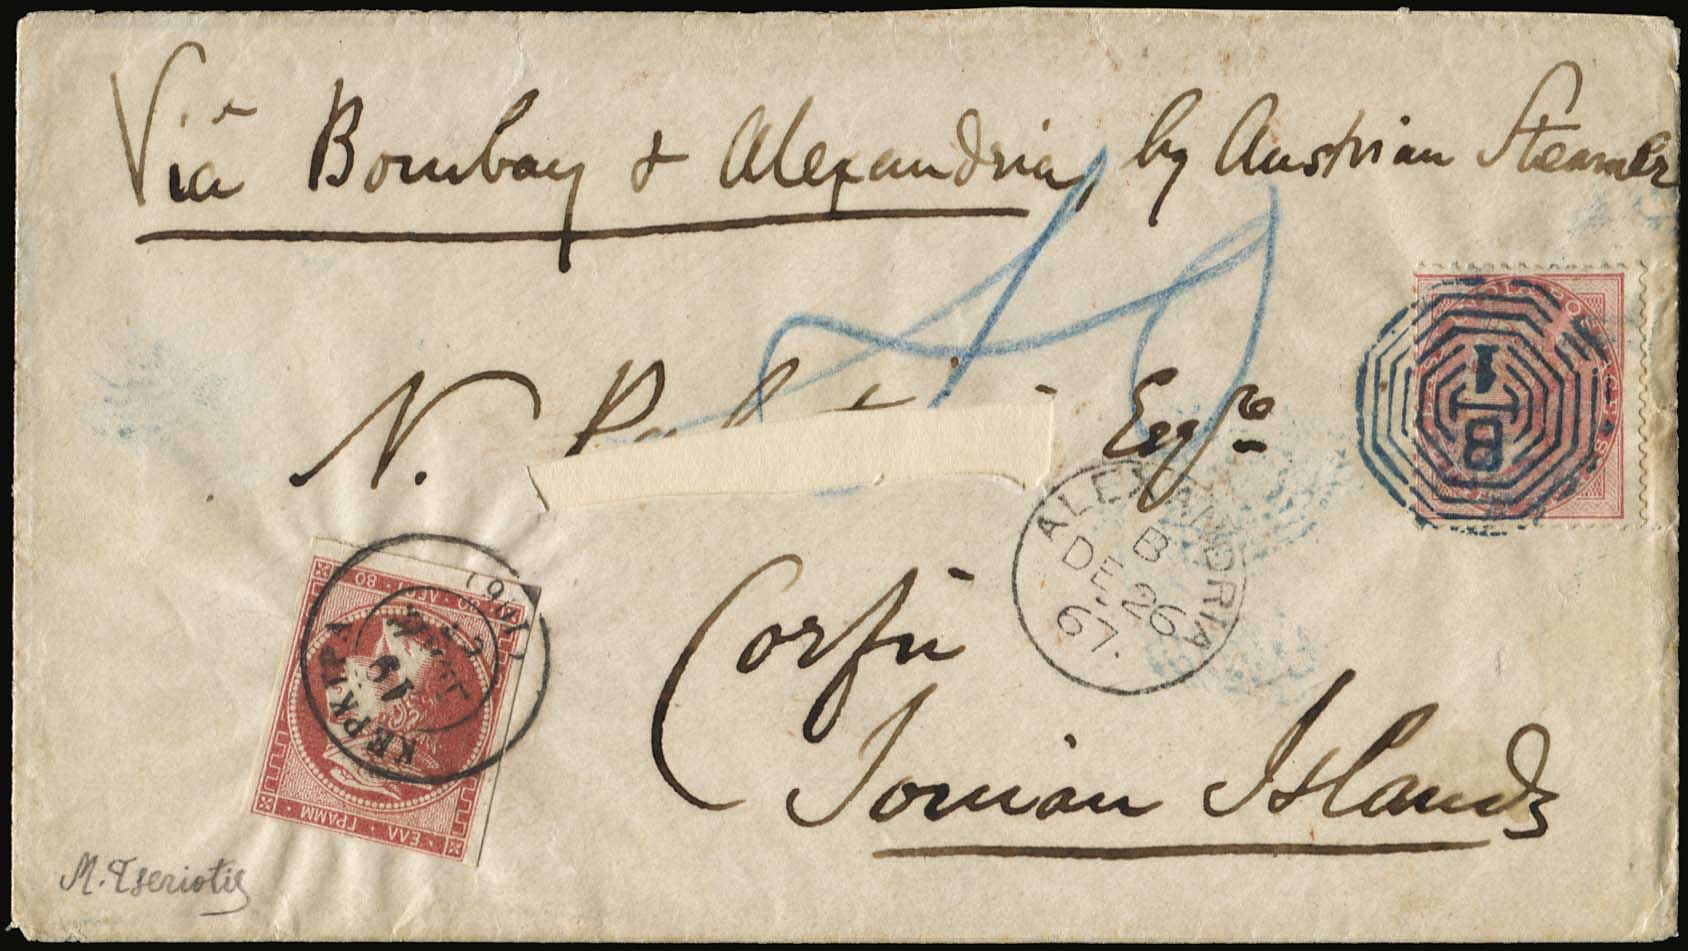 Via Bombay & Alexandria, by Austrian Steamer
N. Esqre
1
B
ALEXANDRIA
B
DE 26
67.
Corfu
Ionian Islands
80 ΛΕΠ 80
ΚΕΡΚΥΡΑ
(96)
19
ΕΛΛ · ΓΡΑΜΜ
M. Tseriotis